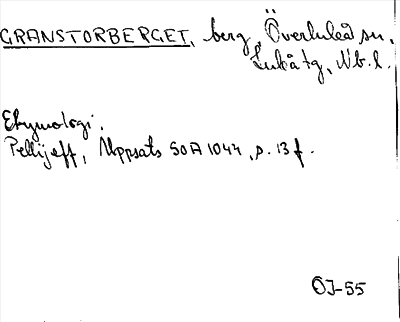 GRANSTORBERGET, berg, Överluleå sn,
Luleå tg, Nb.l.
Etymologi.
Pellijeff, Uppsats SOA 1044, s. 13 f.
OJ-55